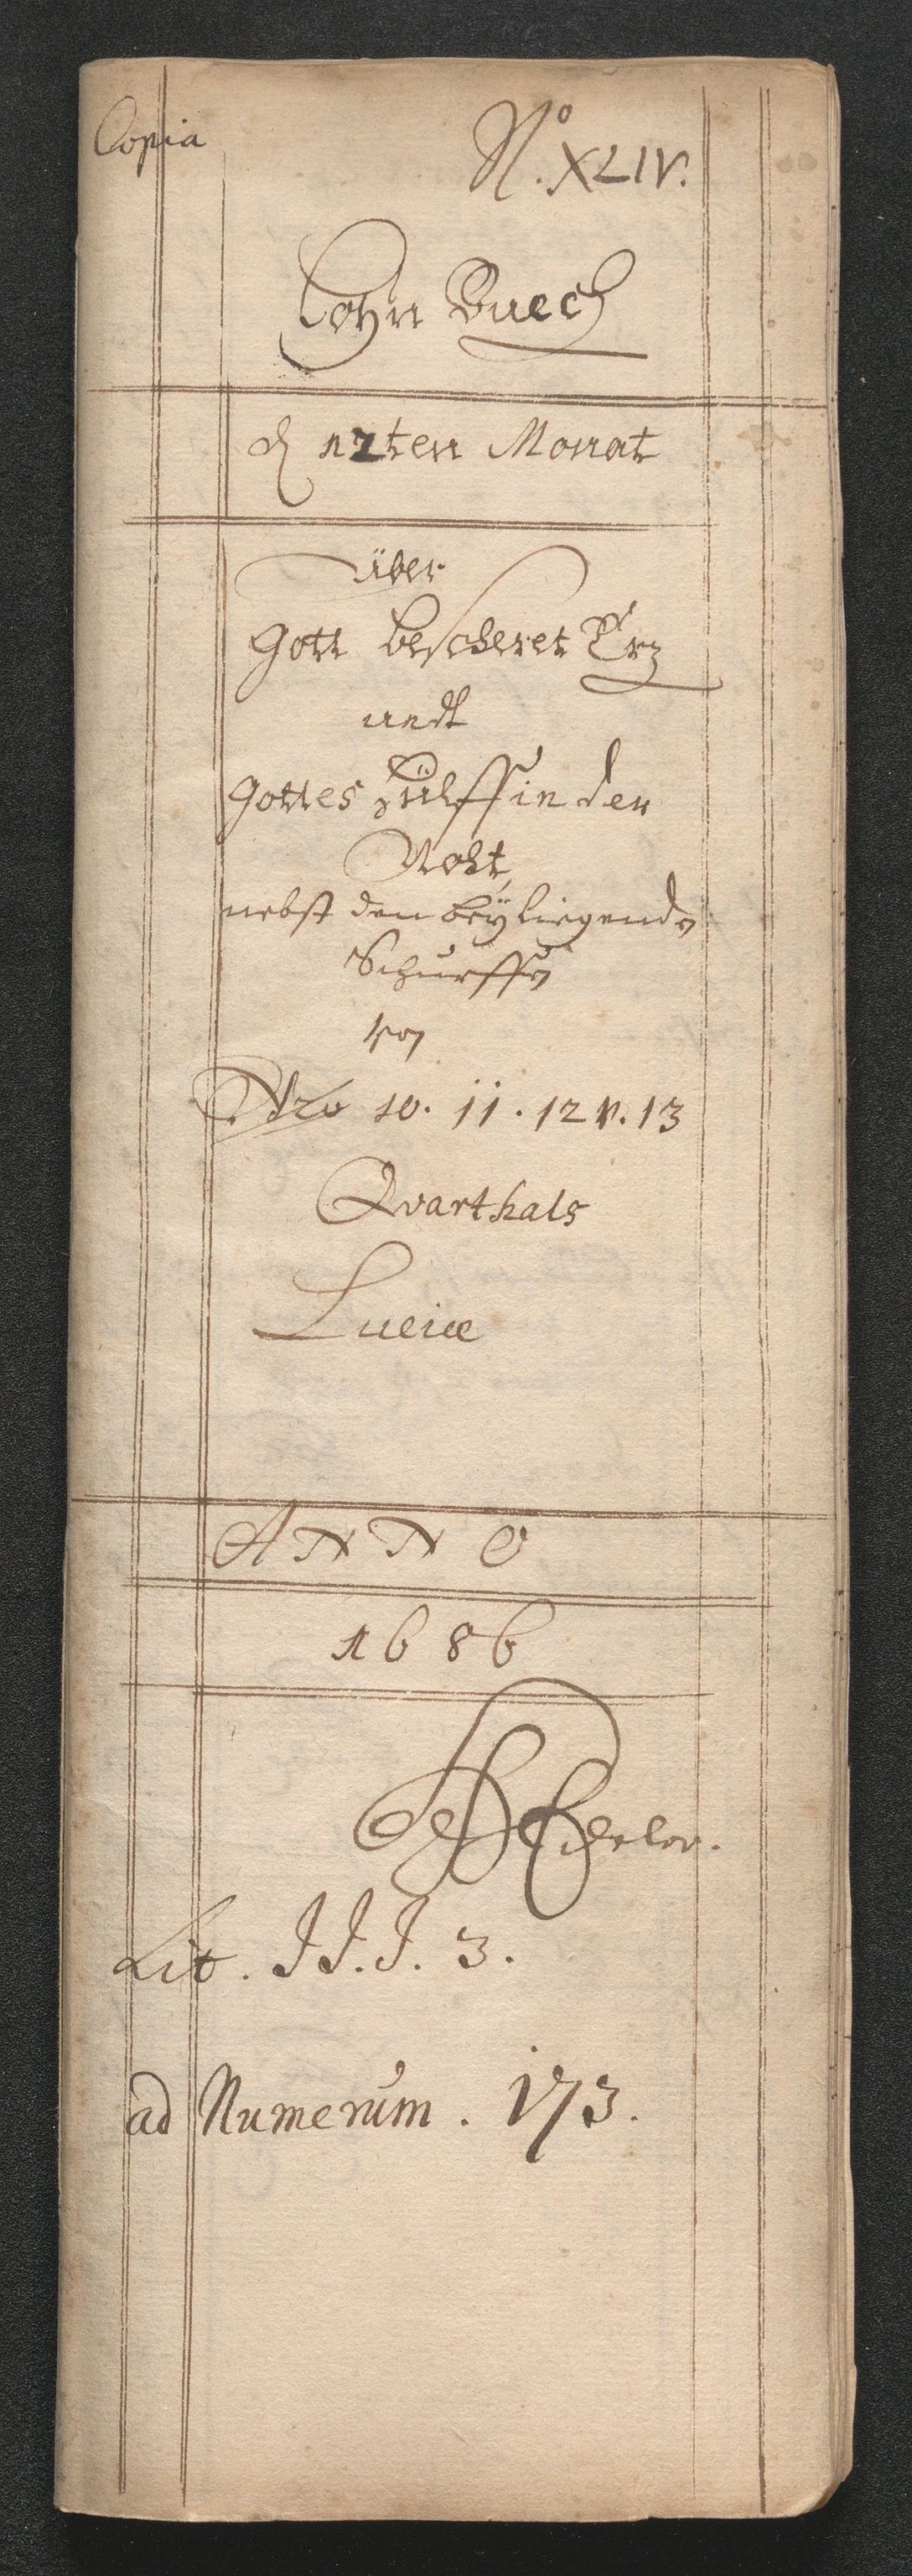 Copia
No. XLIV.
Lohn Buech
d 12ten Monat
über
Gott bescheret Erz
undt
Gottes Hülff in der
Noht,
nebst den beyliegenden
Schurffen
von
Nro 10. 11. 12 u. 13
Qvarthals
Luciæ
ANNO
1686
Lit. JJ.J. 3.
ad Numerum. 173.